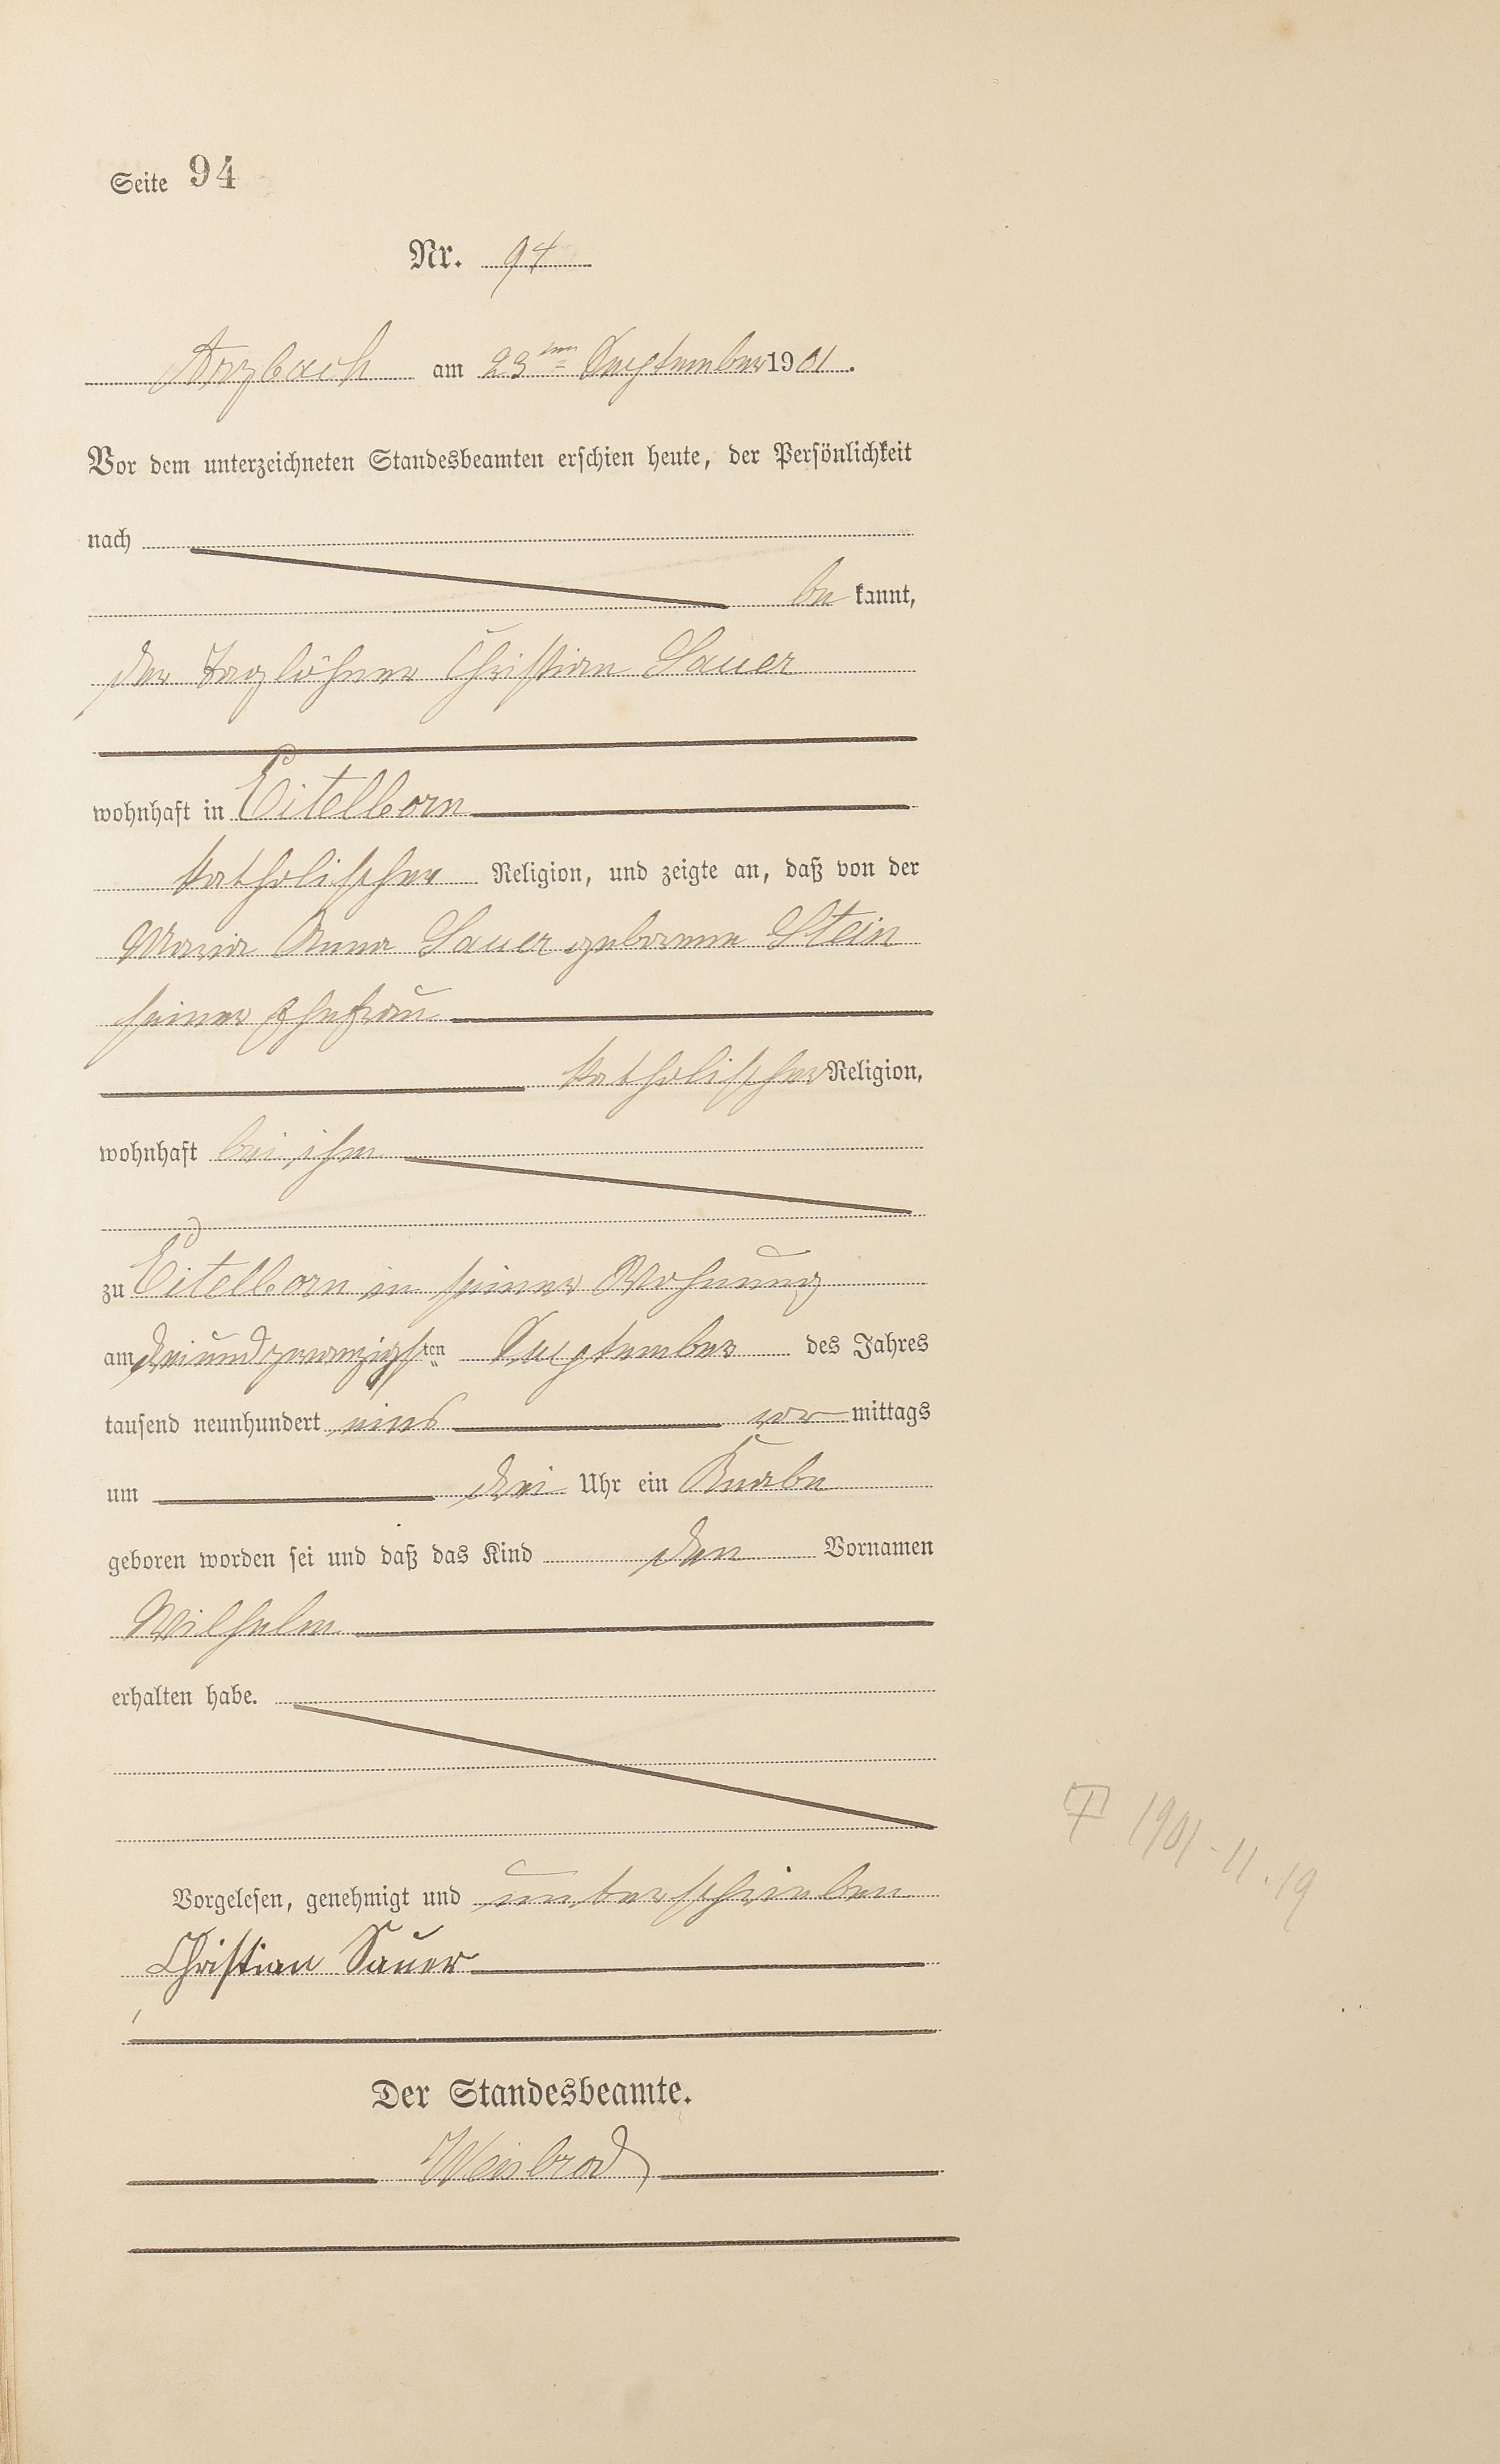 Seite 94
Nr. 94
Arzbach am 23ten September 1901.
Vor dem unterzeichneten Standesbeamten erschien heute, der Persönlichkeit
nach
be kannt,
der Taglöhner Christian Sauer
wohnhaft in Eitelborn
katholischer Religion, und zeigte an, daß von der
Maria Anna Sauer geborene Stein
seiner Ehefrau
katholischer Religion,
wohnhaft bei ihm
zu Eitelborn in seiner Wohnung
am dreiundzwanzigsten September des Jahres
tausend neunhundert eins vor mittags
um drei Uhr ein Knabe
geboren worden sei und daß das Kind den Vornamen
Wilhelm
erhalten habe.
† 1901-11.19
Vorgelesen, genehmigt und unterschrieben
Christian Sauer
Der Standesbeamte.
Weisbrod